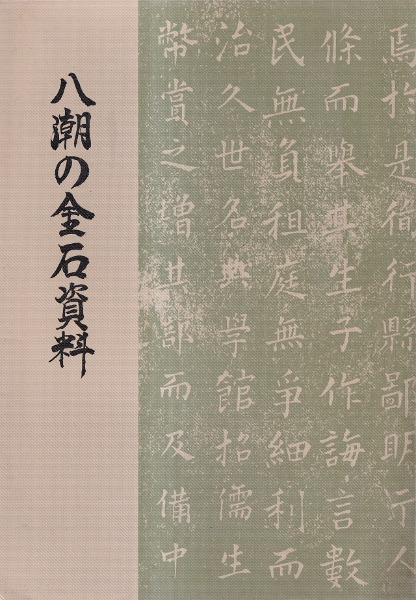 八潮の金石資料
焉於是循行縣鄙明示人
條而舉其生子作誨言數
民無負租庭無爭細利而
治久世名典學館招儒生
幣賞之增其部而及備中